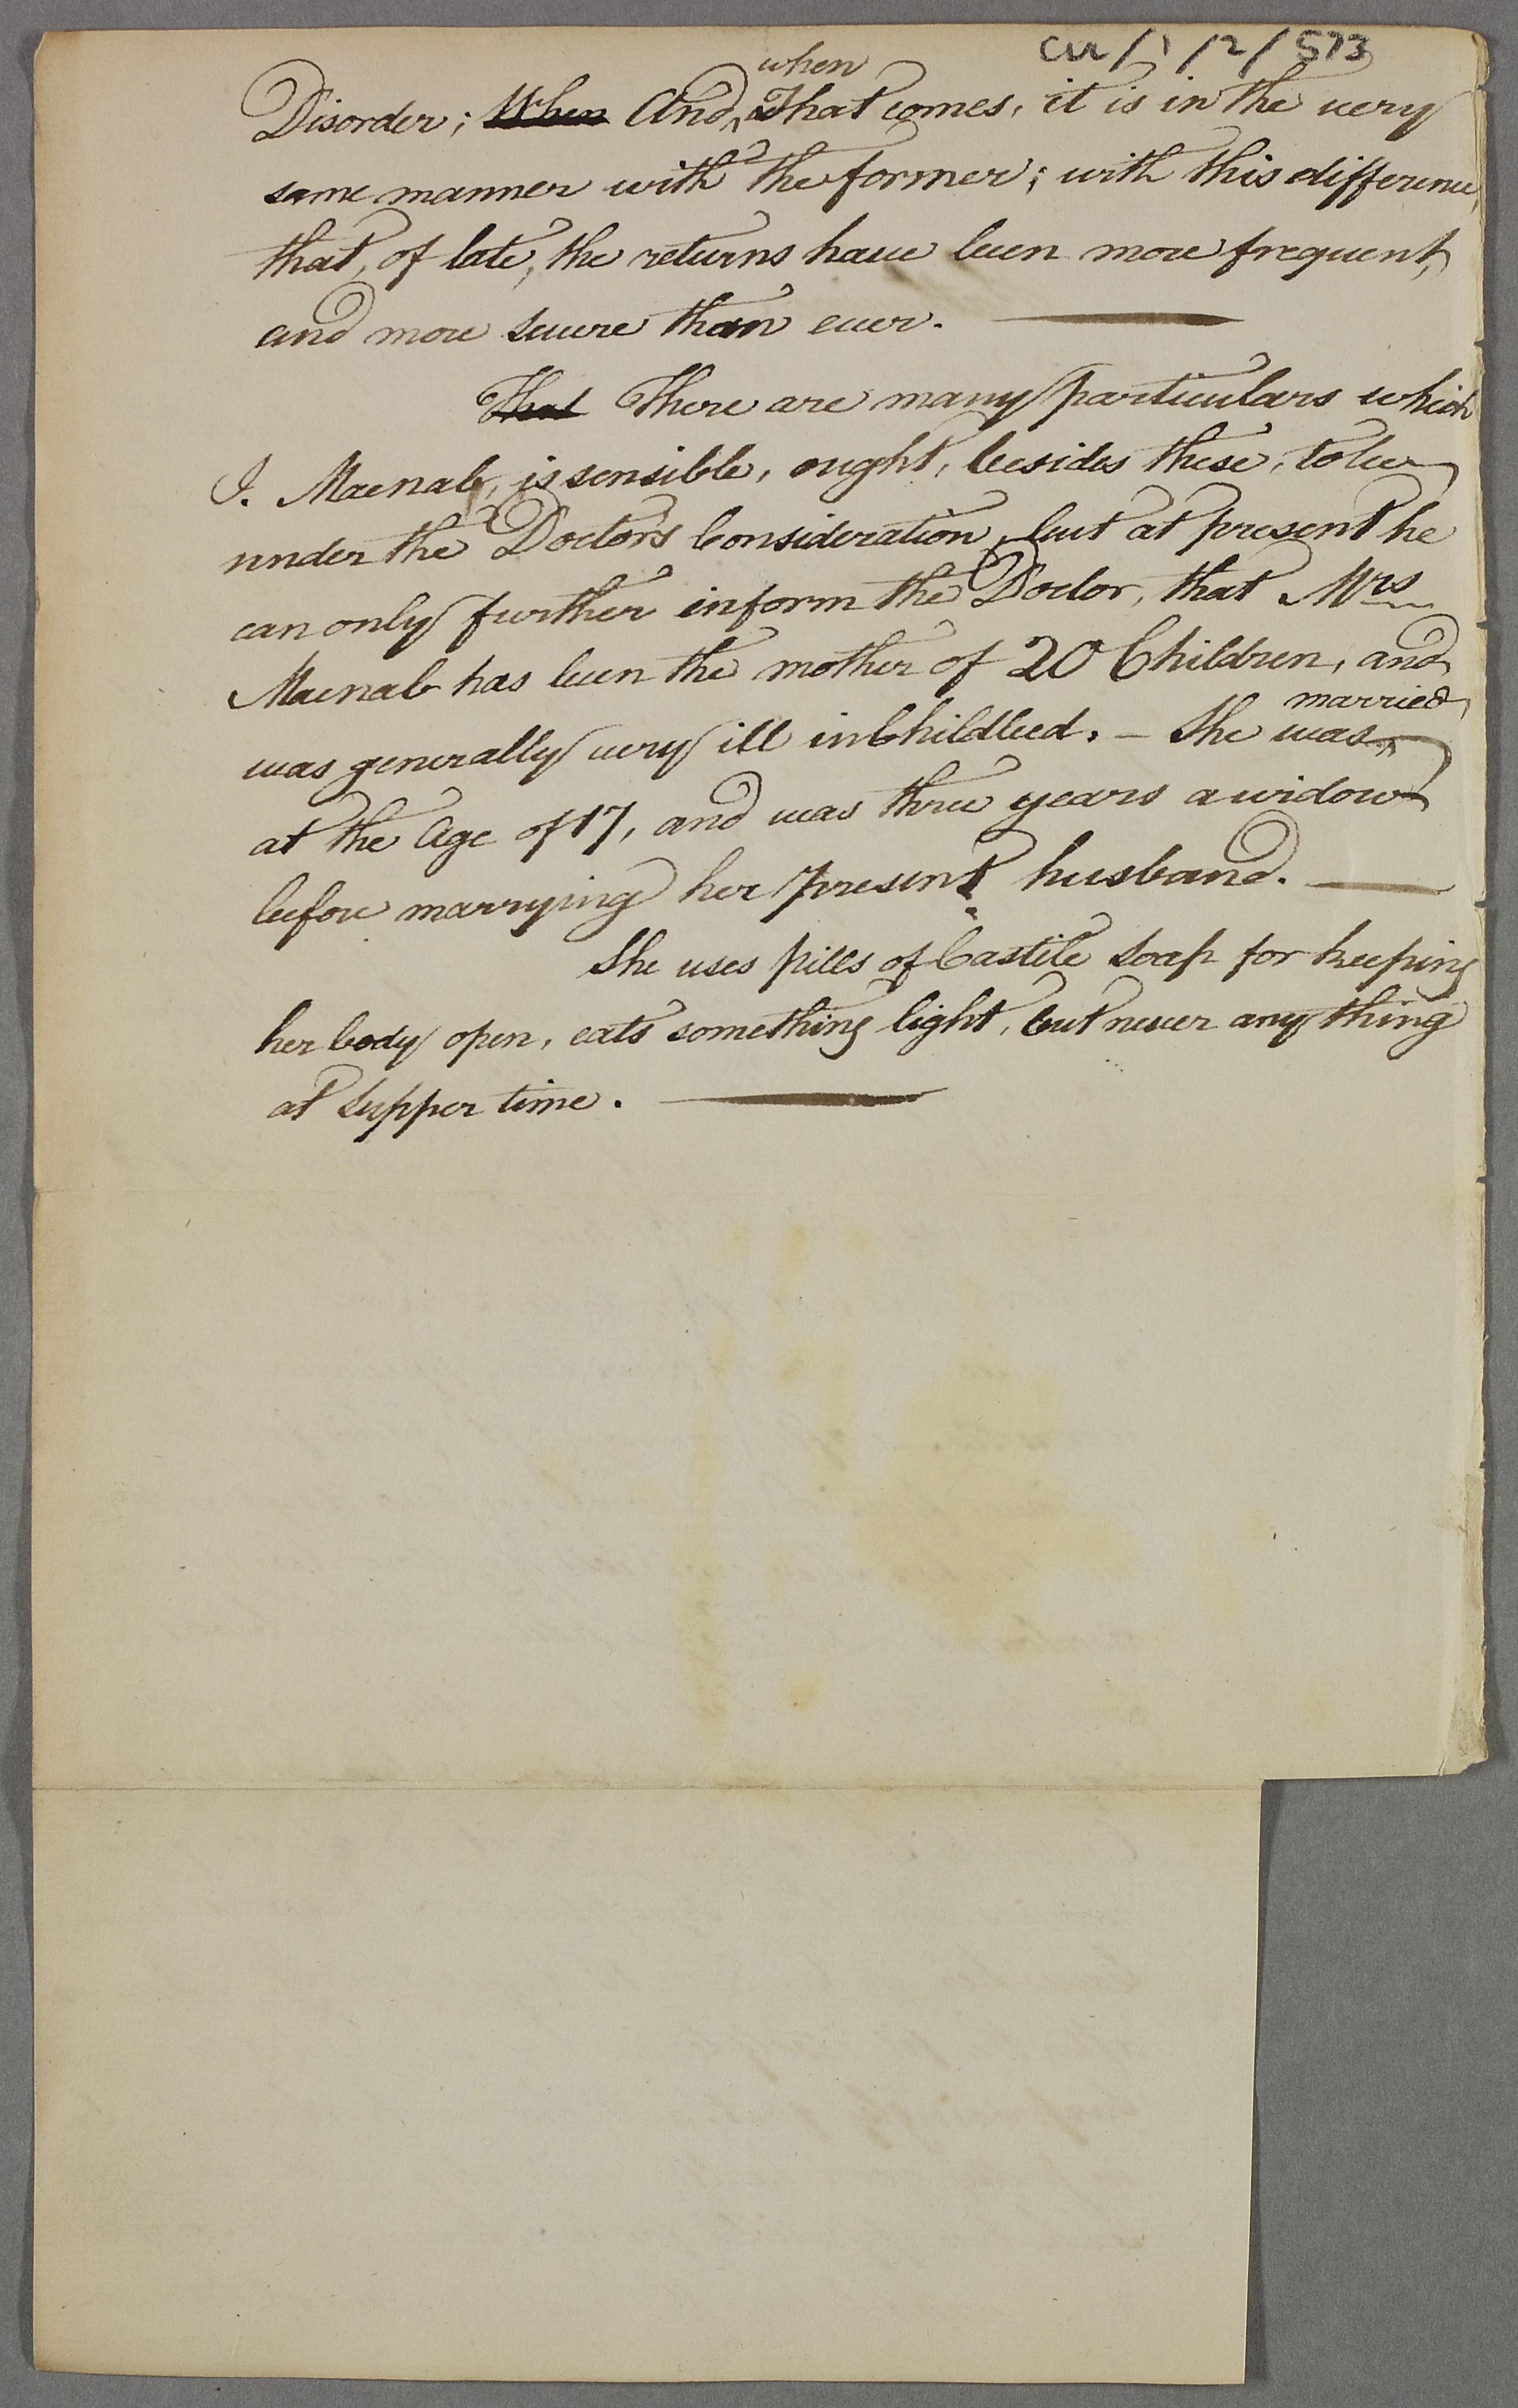 CUL/1/2/573
when
Disorder; When And, That comes, it is in the very
same manner with the former; with this difference,
that, of late, the returns have been more frequent,
and more severe than ever.
That There are many particulars which
J. Macnab, is sensible, ought, besides these, to be
under the Doctor's Consideration, but at present he
can only further inform the Doctor, that Mrs
Macnab has been the mother of 20 Children, and
was generally very ill in Childbed. – She was
married
at the Age of 17, and was three years a widow
before marrying her present husband.
She uses pills of Castile soap for keeping
her body open, eats something light, but never any thing
at supper time.